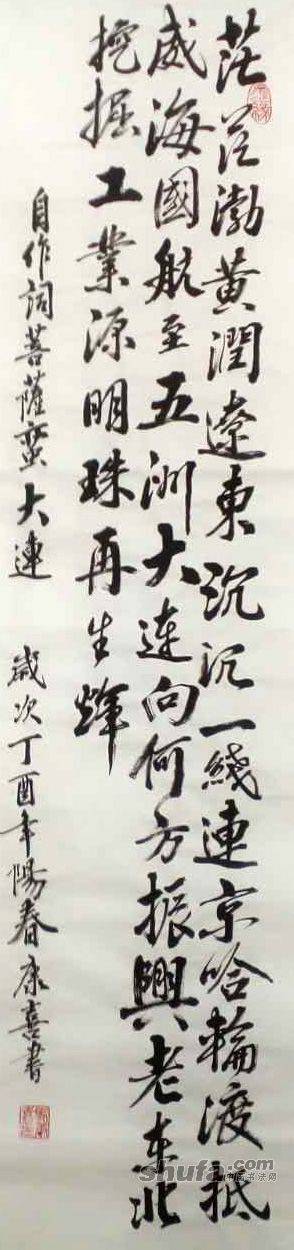 茫茫渤黄潤遼東沉沉一綫連京哈輪渡抵
威海國航至五洲大連向何方振興老东北
挖掘工業源明珠再生輝
自作詞菩薩蠻大連 歲次丁酉年陽春康喜書
shufa.com